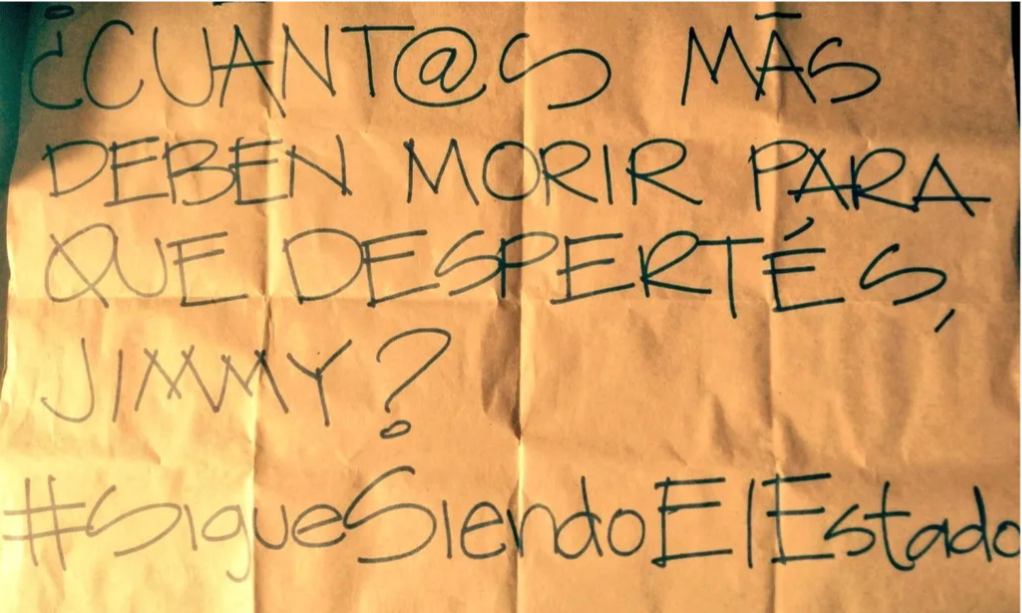 ¿CUÁNT@S MÁS
DEBEN MORIR PARA
QUE DESPERTÉS,
JIMMY?
#SigueSiendoElEstado